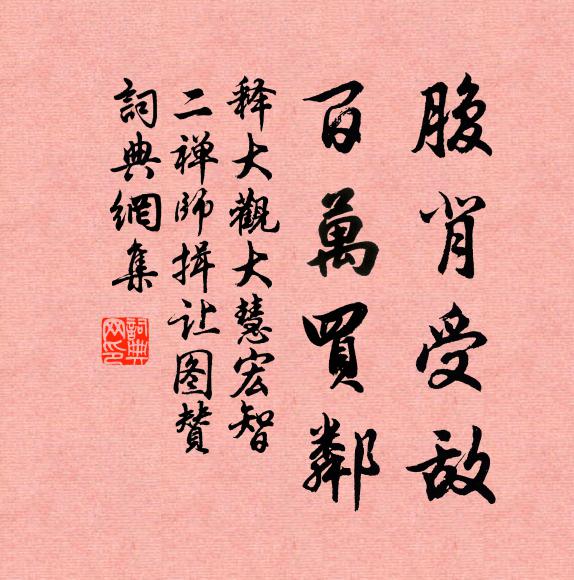 腹背受敌
百萬買鄰
释大觀大慧宏智
二禅師揖让图贊
詞典網集
詞典网印